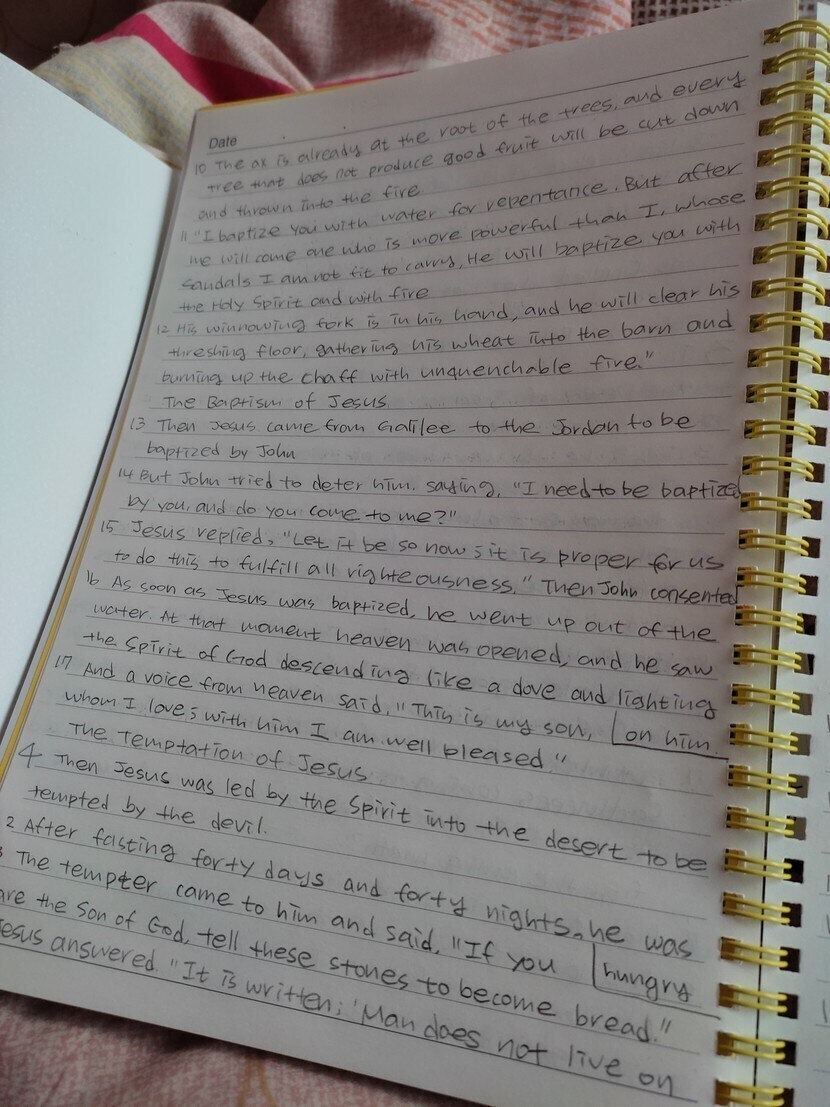 Date
10 The ax is already at the root of the trees, and every
tree that does not produce good fruit will be cut down
and thrown into the fire
11 "I baptize you with water for repentance. But after
me will come one who is more powerful than I, whose
sandals I am not fit to carry. He will baptize you with
the Holy Spirit and with fire
12 His winnowing fork is in his hand, and he will clear his
threshing floor, gathering his wheat into the barn and
burning up the chaff with unquenchable fire."
The Baptism of Jesus
13 Then Jesus came from Galilee to the Jordan to be
baptized by John
14 But John tried to deter him. saying, "I need to be baptized
by you, and do you come to me?"
15 Jesus replied, "Let it be so now; it is proper for us
to do this to fulfill all righteousness." Then John consented
16 As soon as Jesus was baptized, he went up out of the
water. At that moment heaven was opened, and he saw
the Spirit of God descending like a dove and lighting
on him.
17 And a voice from heaven said, "This is my son,
whom I love; with him I am well pleased."
The Temptation of Jesus
4 Then Jesus was led by the Spirit into the desert to be
tempted by the devil.
2 After fasting forty days and forty nights, he was
hungry
3 The tempter came to him and said, "If you
are the Son of God, tell these stones to become bread."
Jesus answered "It is written; 'Man does not live on